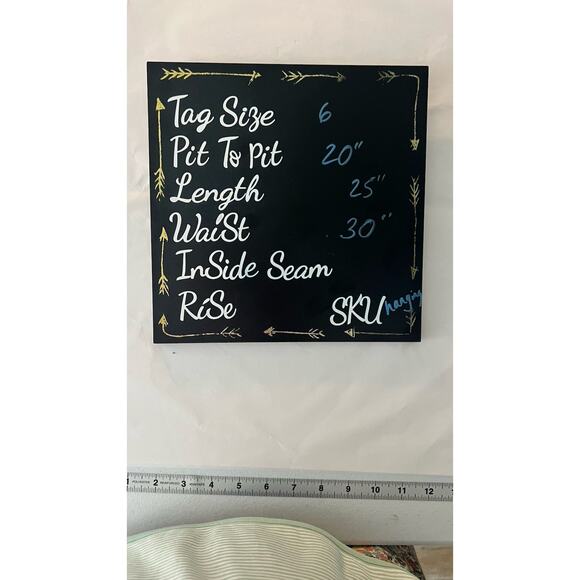 Tag Size 6
Pit To Pit 20"
Length 25"
Waist 30"
InSide Seam
RiSe
SKU hanging
1 2 3 4 5 6 7 8 9 10 11 12